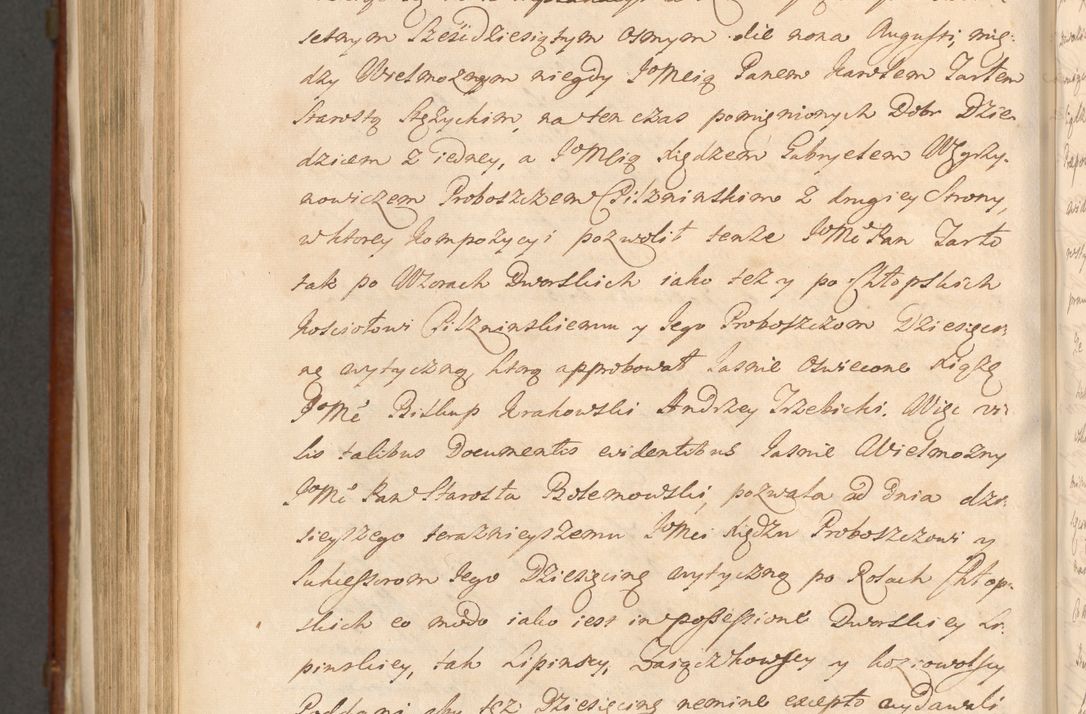 setnym Sześcdziesiątym osmym die nona Augusti, mię:
dzy Wielmożnym niegdy JoMcią Panem Karolem Tarłem
Starostą Stężyckim, na ten czas pomięnionych Dobr Dzie-
dzicem z iedney, a JoMcią Xiędzem Gabryelem Węgrzy-
nowiczem Proboszczem Pilznienskim z drugiey Strony,
w ktorey kompozycyi pozwolił tenże JoMć Pan Tarło
tak po Wzorach Dworskich iako też y po Chłopskich
Kosciołowi Pilznienskiemu y Jego Proboszczom Dziesięci:
nę wytyczną, ktorą approbował Jasnie Oswiecone Xiążę
JoMć Biskup Krakowski Andrzey Trzebicki. Więc vi:
sis talibus Documentis evidentibus Jasnie Wielmożny
JoMć Pan Starosta Bolemowski, pozwala ad dnia dzi:
sieyszego teraznieyszemu JoMci Xiędzu Proboszczowi y
Sukcessorom Jego Dziesięcinę wytyczną po Rolach Chłop-
skich eo modo iako iest in possessione Dworskiey Li-
pinskiey, tak Lipinscy, Zaiączkowscy y Koziowolscy
Poddani aby też Dziesięcinę nemine excepto wydawali